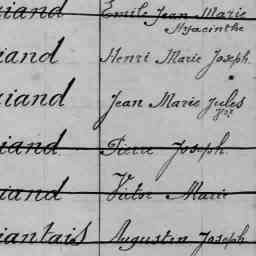 iand Emile Jean Marie
Hyacinthe
iand Henri Marie Joseph
iand Jean Marie Jules
iand Pierre Joseph
iand Victor Marie
iantais Augustin Joseph